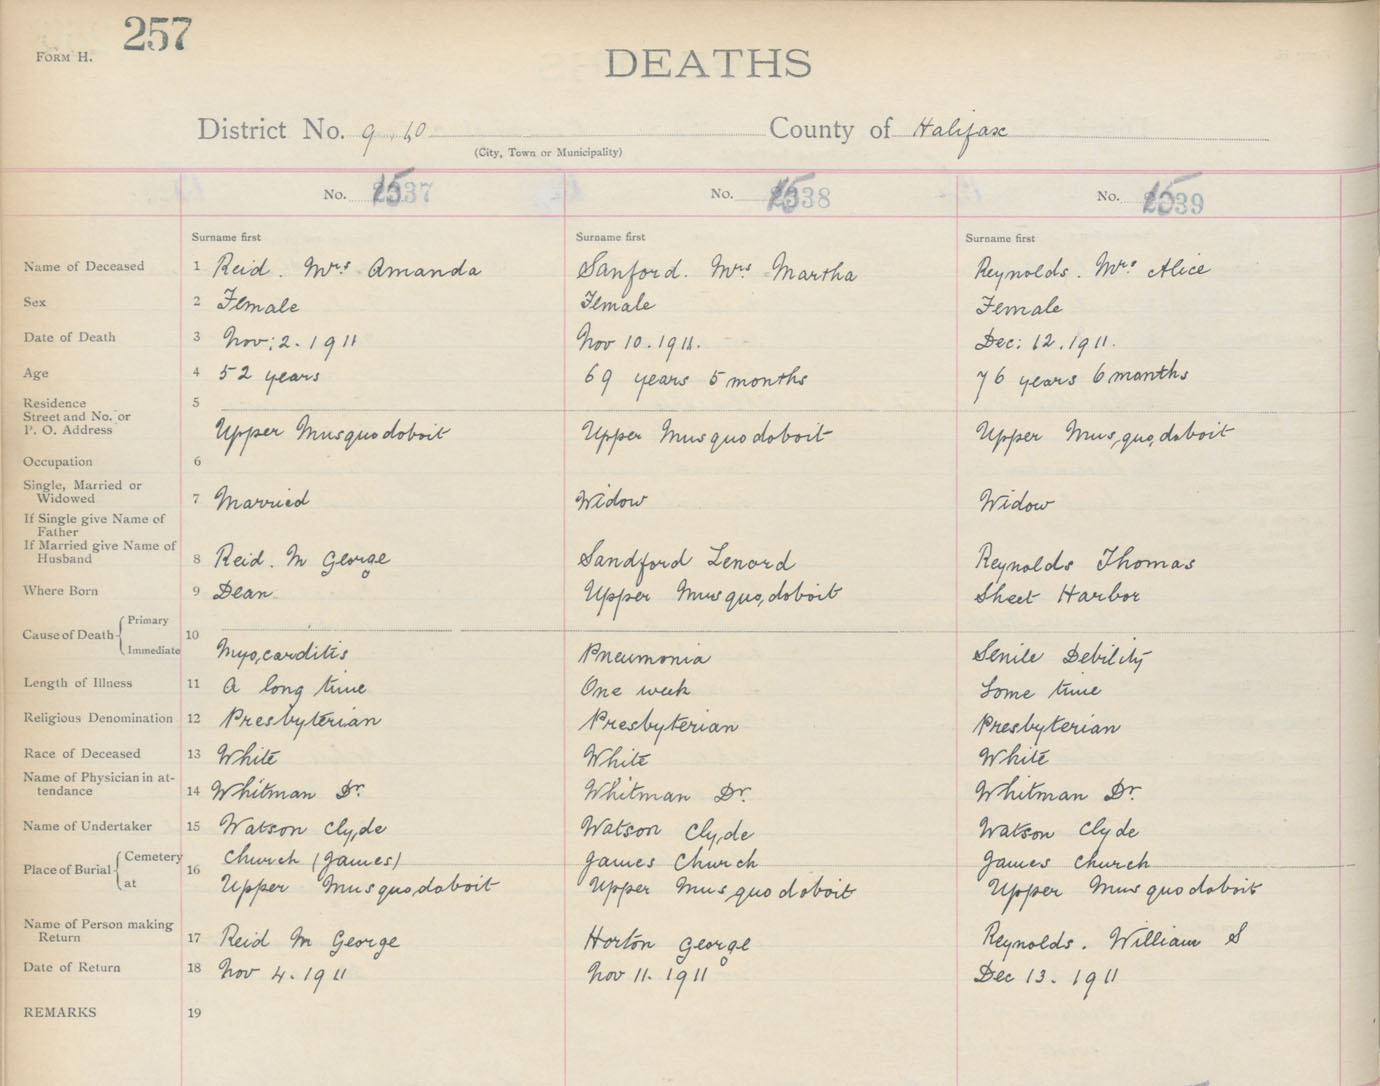 257
FORM H.
DEATHS
District No. 9, 60 County of Halifax
(City, Town or Municipality)
No. 2337 No. 2338 No. 2339
Surname first Surname first Surname first
Name of Deceased 1 Reid. Mrs Amanda Sanford. Mrs Martha Reynolds. Mrs Alice
Sex 2 Female Female Female
Date of Death 3 Nov: 2. 1911 Nov 10. 1911. Dec: 12. 1911.
Age 4 52 years 69 years 5 months 76 years 6 months
Residence 5
Street and No. or
P. O. Address Upper Musquodoboit Upper Musquodoboit Upper Musquodoboit
Occupation 6
Single, Married or
Widowed 7 Married Widow Widow
If Single give Name of
Father
If Married give Name of
Husband 8 Reid. M George Sandford Lenord Reynolds Thomas
Where Born 9 Dean Upper Musquodoboit Sheet Harbor
Cause of Death Primary
10
Immediate Myocarditis Pneumonia Senile Debility
Length of Illness 11 A long time One week Some time
Religious Denomination 12 Presbyterian Presbyterian Presbyterian
Race of Deceased 13 White White White
Name of Physician in at-
tendance 14 Whitman Dr. Whitman Dr. Whitman Dr.
Name of Undertaker 15 Watson Clyde Watson Clyde Watson Clyde
Place of Burial Cemetery Church (James) James Church James Church
16
at Upper Musquodoboit Upper Musquodoboit Upper Musquodoboit
Name of Person making
Return 17 Reid M George Horton George Reynolds. William S
Date of Return 18 Nov 4. 1911 Nov 11. 1911 Dec 13. 1911
REMARKS 19